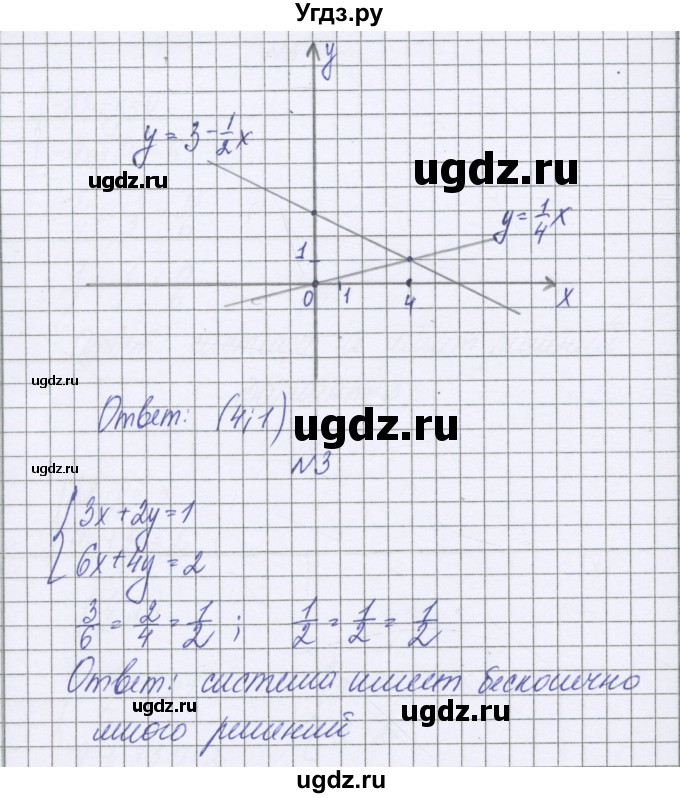 Угдз.ру
y
y = 3 - 1/2 x
ugdz.ru
ugdz.ru
y = 1/4 x
1
0 1 4 x
ugdz.ru
ugdz.ru
Ответ: (4;1)
ugdz.ru
ugdz.ru
N3
{ 3x + 2y = 1
6x + 4y = 2
ugdz.ru
3/6 = 2/4 = 1/2 ; 1/2 = 1/2 = 1/2
Ответ: система имеет бесконечно
ugdz.ru
ugdz.ru
много решений
ugdz.ru